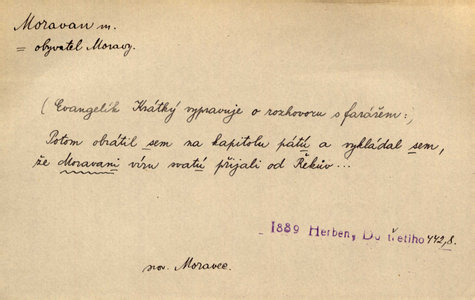 Moravan m.
= obyvatel Moravy.
(Evangelík Krátký vypravuje o rozhovoru s farářem:)
Potom obrátil sem na kapitolu pátú a vykládal sem,
že Moravani víru svatú přijali od Řekův...
1889 Herben, Do třetího 442,8.
nov. Moravec.